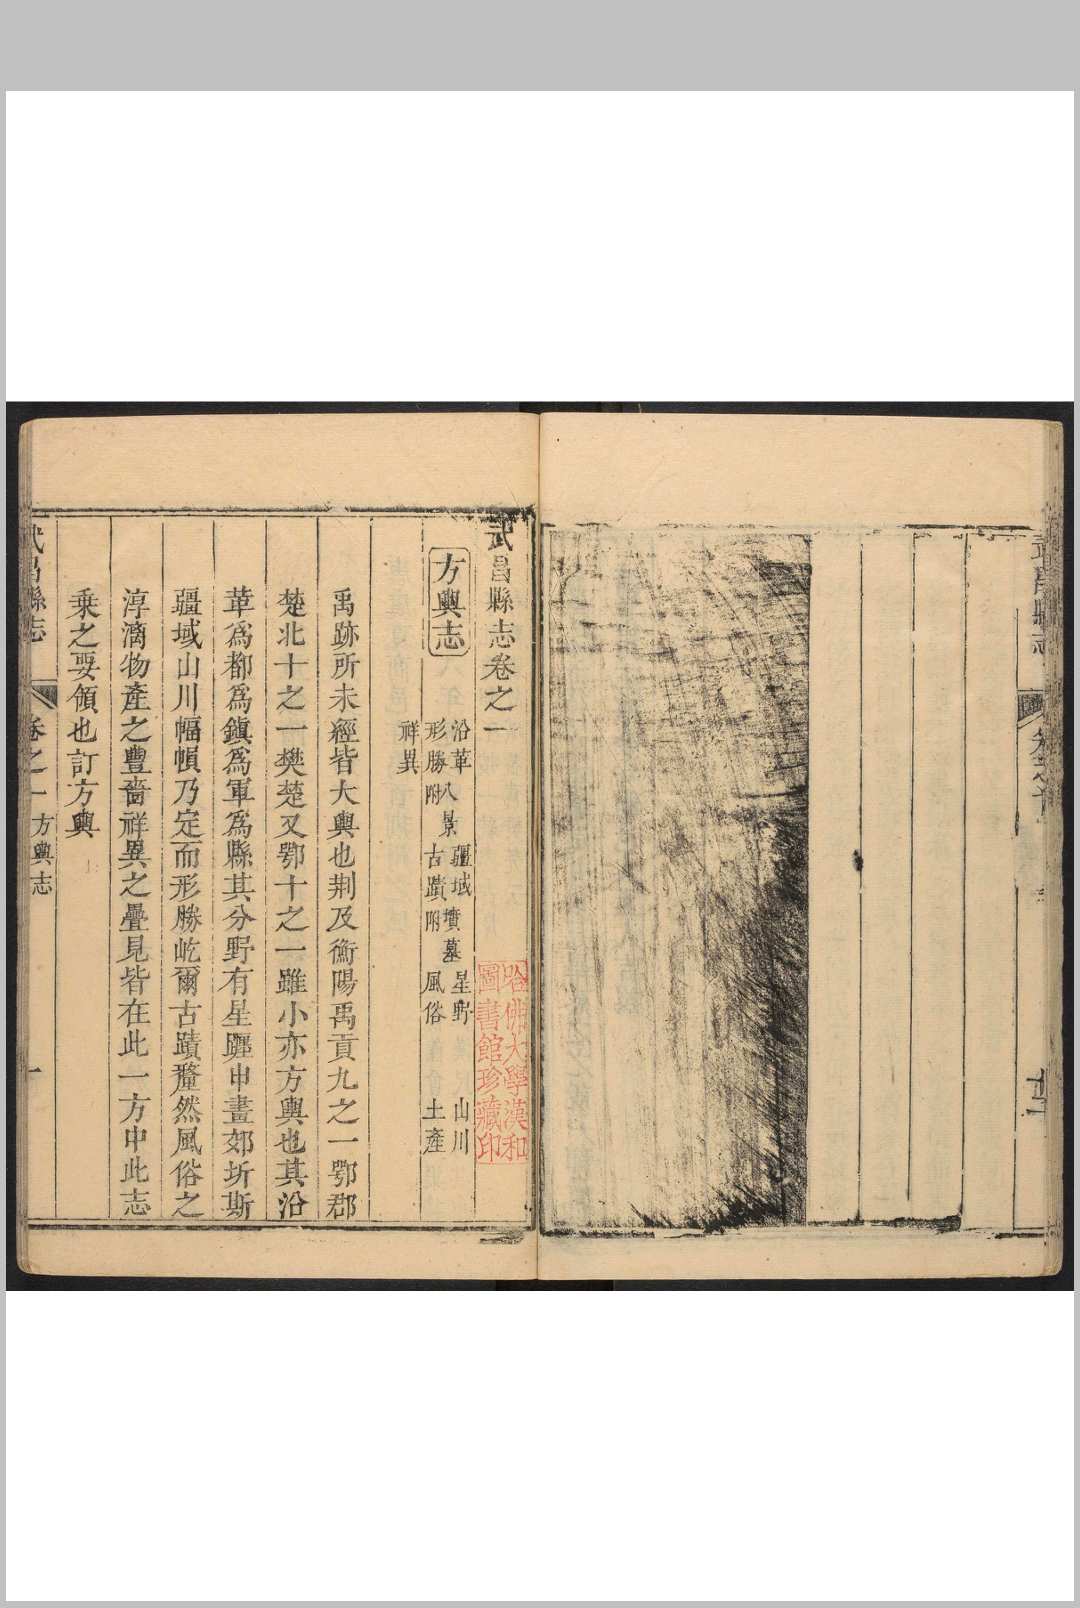 武昌縣志
武昌縣志卷之一
方輿志
沿革 疆域 星野 山川
形勝附八景 古蹟附墳墓 風俗 土產
祥異
禹跡所未經皆大輿也荆及衡陽禹貢九之一鄂郡
楚北十之一樊楚又鄂十之一雖小亦方輿也其沿
革爲都爲鎮爲軍爲縣其分野有星躔申畫郊圻斯
疆域山川幅幀乃定而形勝屹爾古蹟犛然風俗之
淳漓物產之豐嗇祥異之疊見皆在此一方中此志
乘之要領也訂方輿
武昌縣志 卷之一 方輿志 一
哈佛大學漢和
圖書館珍藏印